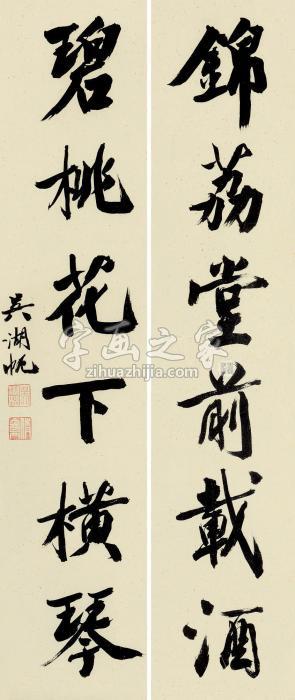 錦荔堂前載酒
碧桃花下橫琴
吳湖帆
字画之家
zihuazhijia.com